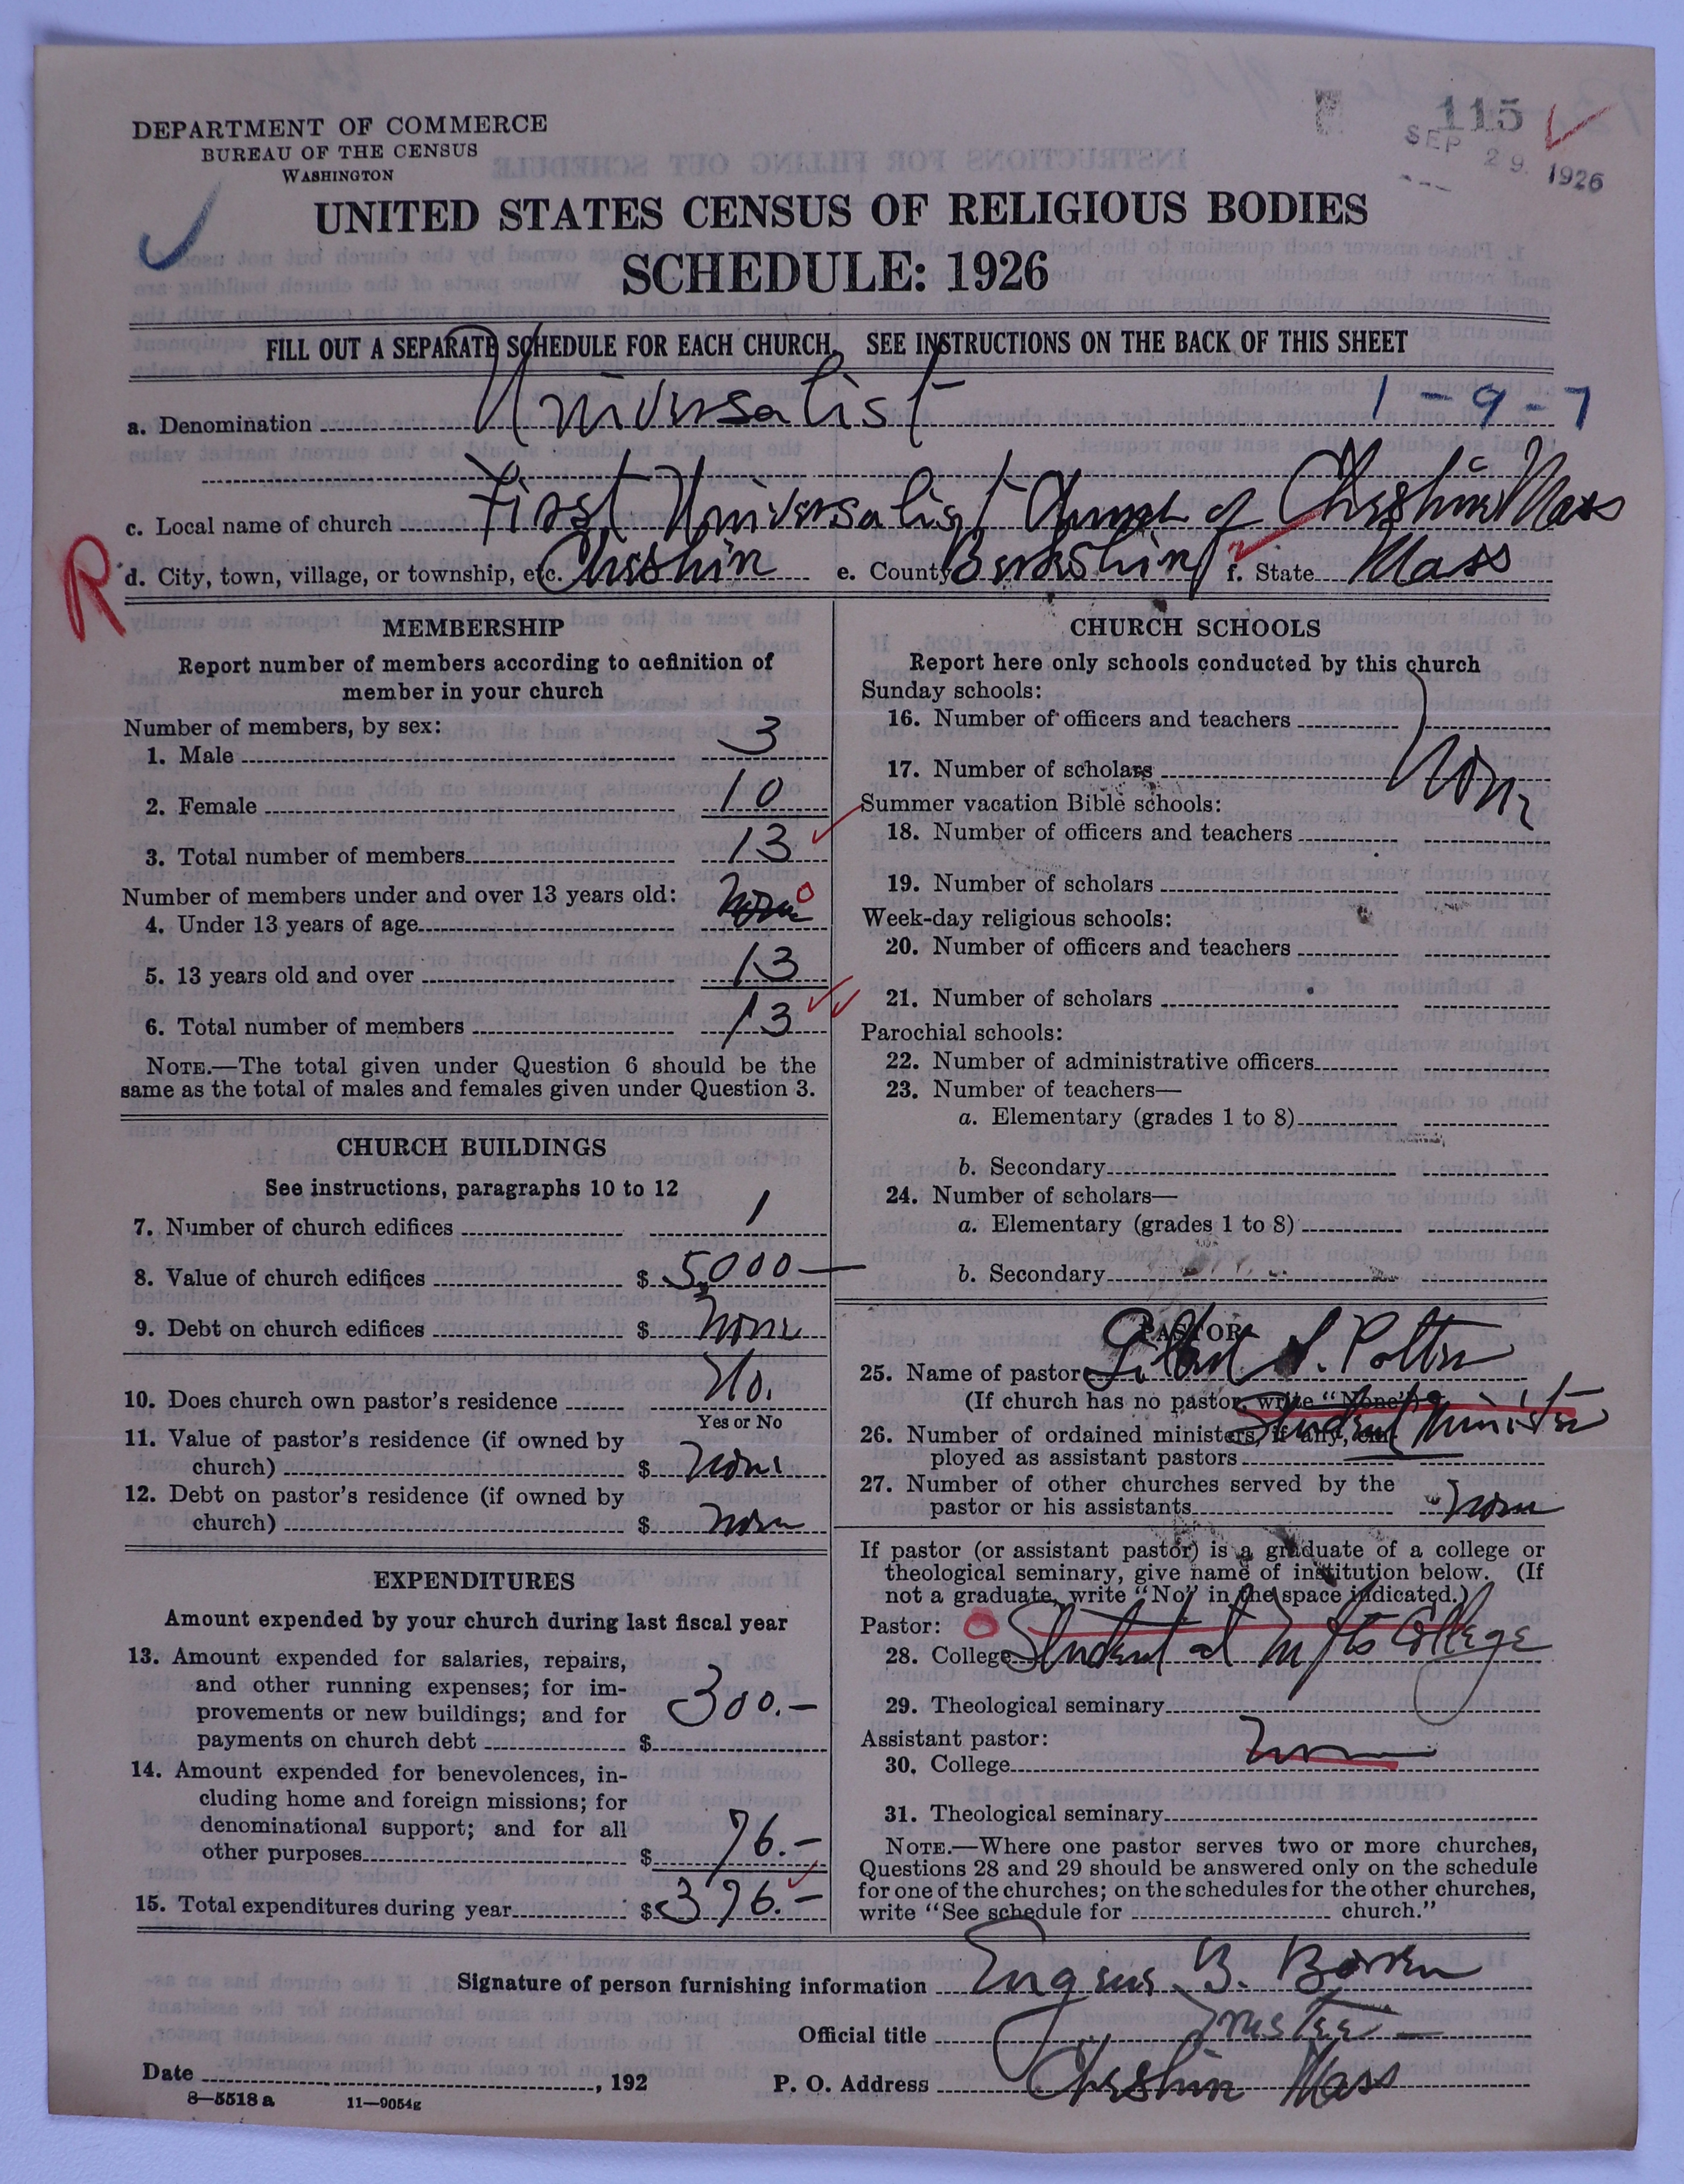 DEPARTMENT OF COMMERCE
BUREAU OF THE CENSUS
WASHINGTON
115
SEP 29 1926
UNITED STATES CENSUS OF RELIGIOUS BODIES
SCHEDULE: 1926
FILL OUT A SEPARATE SCHEDULE FOR EACH CHURCH. SEE INSTRUCTIONS ON THE BACK OF THIS SHEET
a. Denomination Universalist 1-9-7
c. Local name of church First Universalist Church of Cheshire Mass
R
d. City, town, village, or township, etc. Cheshire e. County Berkshire f. State Mass
MEMBERSHIP
Report number of members according to definition of
member in your church
Number of members, by sex:
1. Male 3
2. Female 10
3. Total number of members 13
Number of members under and over 13 years old:
4. Under 13 years of age None 0
5. 13 years old and over 13
6. Total number of members 13
NOTE.—The total given under Question 6 should be the
same as the total of males and females given under Question 3.
CHURCH BUILDINGS
See instructions, paragraphs 10 to 12
7. Number of church edifices 1
8. Value of church edifices $ 5,000—
9. Debt on church edifices $ None
10. Does church own pastor's residence No.
Yes or No
11. Value of pastor's residence (if owned by
church) $ None
12. Debt on pastor's residence (if owned by
church) $ None
EXPENDITURES
Amount expended by your church during last fiscal year
13. Amount expended for salaries, repairs,
and other running expenses; for im-
provements or new buildings; and for
payments on church debt $ 300.—
14. Amount expended for benevolences, in-
cluding home and foreign missions; for
denominational support; and for all
other purposes $ 76.—
15. Total expenditures during year $ 376.—
CHURCH SCHOOLS
Report here only schools conducted by this church
Sunday schools:
16. Number of officers and teachers
17. Number of scholars None
Summer vacation Bible schools:
18. Number of officers and teachers
19. Number of scholars
Week-day religious schools:
20. Number of officers and teachers
21. Number of scholars
Parochial schools:
22. Number of administrative officers
23. Number of teachers—
a. Elementary (grades 1 to 8)
b. Secondary
24. Number of scholars—
a. Elementary (grades 1 to 8)
b. Secondary
PASTOR
25. Name of pastor Potter
(If church has no pastor, write "None")
Student Minister
26. Number of ordained ministers, if any, em-
ployed as assistant pastors
27. Number of other churches served by the
pastor or his assistants None
If pastor (or assistant pastor) is a graduate of a college or
theological seminary, give name of institution below. (If
not a graduate, write "No" in the space indicated.)
Pastor: 0
28. College Student at Tufts College
29. Theological seminary
Assistant pastor:
30. College None
31. Theological seminary
NOTE.—Where one pastor serves two or more churches,
Questions 28 and 29 should be answered only on the schedule
for one of the churches; on the schedules for the other churches,
write "See schedule for church."
Signature of person furnishing information Eugene B. Bowen
Official title Trustee
Date , 192 P. O. Address Cheshire Mass
8—5518 a 11—9054g